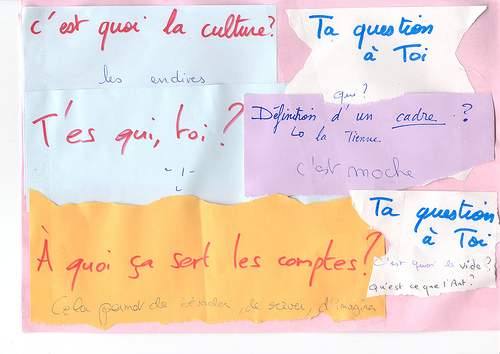 c'est quoi la culture?
les endives
Ta question
à Toi
que?
T'es qui, toi?
Définition d'un cadre?
Lo la Tienne
c'est moche
Ta question
à Toi
c'est quoi le vide?
Qu'est ce que l'Art?
À quoi ça sert les comptes?
Cela permet de s'évader, de rêver, d'imaginer